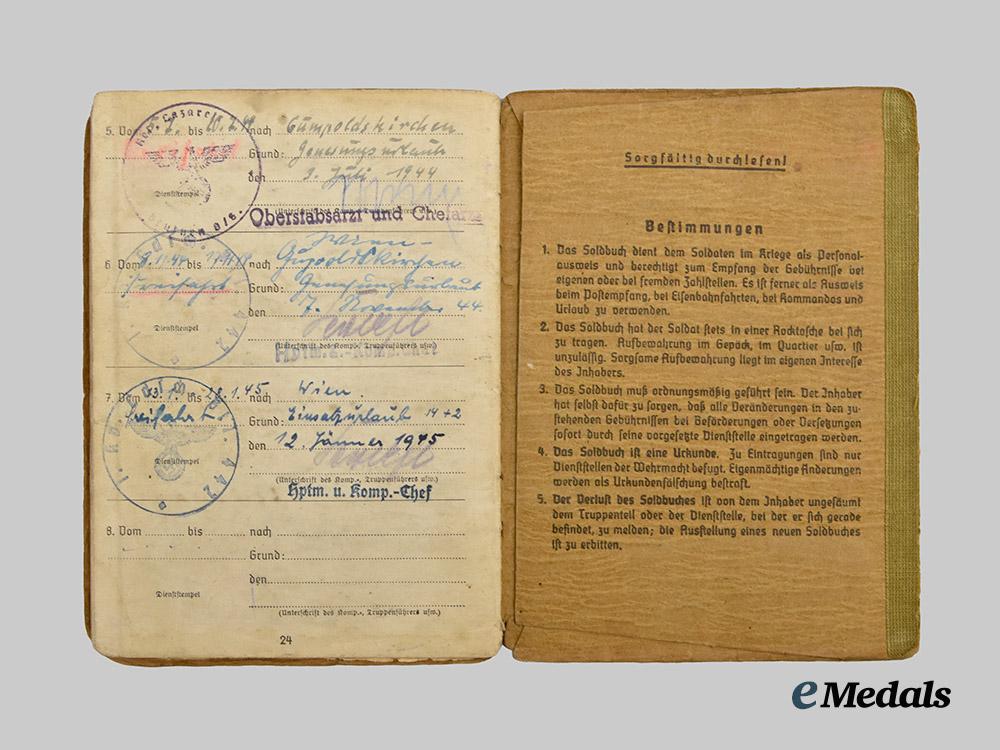 5. Vom bis nach Gumpoldskirchen
Grund: Genesungsurlaub
den 3. Juli 1944
Dienststempel
Oberstabsarzt und Chefarzt
Wien-
6 Vom bis nach Gumpoldskirchen
Freifahrt Grund: Genesungsurlaub
den 7. November 44
Dienststempel
(Unterschrift des Komp.-, Truppenführers usw.)
Hptm. u. Komp.-Chef
7. Vom bis 1.45 nach Wien.
Freifahrt Grund: Einsatzurlaub 14+2
den 12. Jänner 1945
Dienststempel
(Unterschrift des Komp.-, Truppenführers usw.)
Hptm. u. Komp.-Chef
8. Vom bis nach
Grund:
den
Dienststempel
(Unterschrift des Komp.-, Truppenführers usw.)
24
Sorgfältig durchlesen!
Bestimmungen
1. Das Soldbuch dient dem Soldaten im Kriege als Personal-
ausweis und berechtigt zum Empfang der Gebührnisse bei
eigenen oder bei fremden Zahlstellen. Es ist ferner als Ausweis
beim Postempfang, bei Eisenbahnfahrten, bei Kommandos und
Urlaub zu verwenden.
2. Das Soldbuch hat der Soldat stets in einer Rocktasche bei sich
zu tragen. Aufbewahrung im Gepäck, im Quartier usw. ist
unzulässig. Sorgsame Aufbewahrung liegt im eigenen Interesse
des Inhabers.
3. Das Soldbuch muß ordnungsmäßig geführt sein. Der Inhaber
hat selbst dafür zu sorgen, daß alle Veränderungen in den zu-
stehenden Gebührnissen bei Beförderungen oder Versetzungen
sofort durch seine vorgesetzte Dienststelle eingetragen werden.
4. Das Soldbuch ist eine Urkunde. Zu Eintragungen sind nur
Dienststellen der Wehrmacht befugt. Eigenmächtige Änderungen
werden als Urkundenfälschung bestraft.
5. Der Verlust des Soldbuches ist von dem Inhaber ungesäumt
dem Truppenteil oder der Dienststelle, bei der er sich gerade
befindet, zu melden; die Ausstellung eines neuen Soldbuches
ist zu erbitten.
eMedals